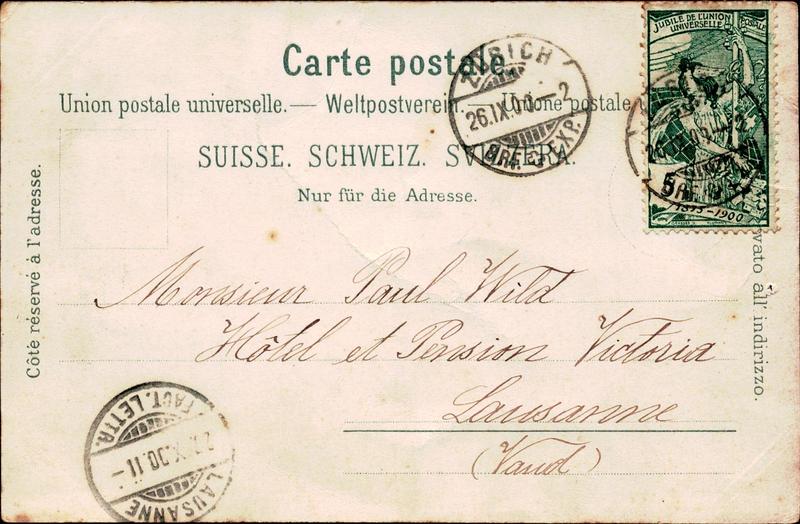 JUBILÉ DE L'UNION POSTALE
UNIVERSELLE
Carte postale.
ZÜRICH
26.IX.00.–2
BRF.EXP.
Union postale universelle. — Weltpostverein. — Unione postale
SUISSE. SCHWEIZ. SVIZZERA.
Nur für die Adresse.
5
1875–1900
Côté réservé à l'adresse.
all' indirizzo.
Monsieur Paul Wild
Hôtel et Pension Victoria
Lausanne
(Vaud)
LAUSANNE
IX.00.11–
FACT. LETTR.